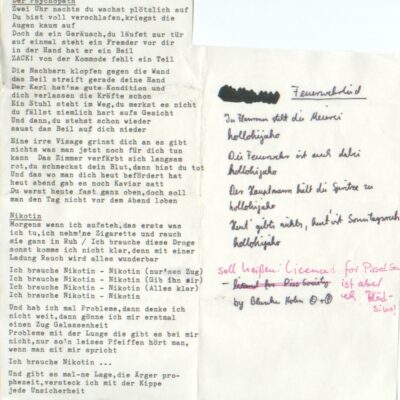 Der Psychopath
Zwei Uhr nachts du wachst plötzlich auf
Du bist voll verschlafen,kriegst die
Augen kaum auf
Doch da ein Geräusch,du läufst zur tür
auf einmal steht ein Fremder vor dir
in der Hand hat er ein Beil
ZACK! von der Kommode fehlt ein Teil
Die Nachbarn klopfen gegen die Wand
das Beil streift gerade deine Hand
Der Kerl hat'ne gute Kondition und
dich verlassen die Kräfte schon
Ein Stuhl steht im Weg,du merkst es nicht
du fällst ziemlich hart aufs Gesicht
Und dann,du stehst schon wieder
saust das Beil auf dich nieder
Eine irre Visage grinst dich an es gibt
nichts was man jetzt noch für dich tun
kann  Das Zimmer verfärbt sich langsam
rot,du schmeckst dein Blut,dann bist du tot
Und das wo man dich heut befördert hat
heut abend gab es noch Kaviar satt
Du warst heute fast ganz oben,doch soll
man den Tag nicht vor dem Abend loben
Nikotin
Morgens wenn ich aufsteh,das erste was
ich tu,ich nehm'ne Zigarette und rauch
sie ganz in Ruh / Ich brauche diese Droge
sonst komme ich nicht klar,denn mit einer
Ladung Rauch wird alles wunderbar
Ich brauche Nikotin - Nikotin (nur'nen Zug)
Ich brauche Nikotin - Nikotin (Gib ihn mir)
Ich brauche Nikotin - Nikotin (Alles klar)
Ich brauche Nikotin - Nikotin
Und hab ich mal Probleme,dann denke ich
nicht weit,dann gönne ich mir erstmal
einen Zug Gelassenheit
Probleme mit der Lunge die gibt es bei mir
nicht,nur so'n leises Pfeiffen hört man,
wenn man mit mir spricht
Ich brauche Nikotin ...
Und gibt es mal-ne Lage,die Ärger pro-
phezeit,versteck ich mit der Kippe
jede Unsicherheit
Feuerwehrlied
In Hannover steht die
hollahijaho
Die Feuerwehr ist auch dabei
hollahijaho
Der Hauptmann hält die Spritze zu
hollahijaho
Heut' gibts nichts, heut ist Sonntagsruh
hollahijaho
soll heißen: Licenced for
ist aber
- for Piss Society
by Blanke Hohn